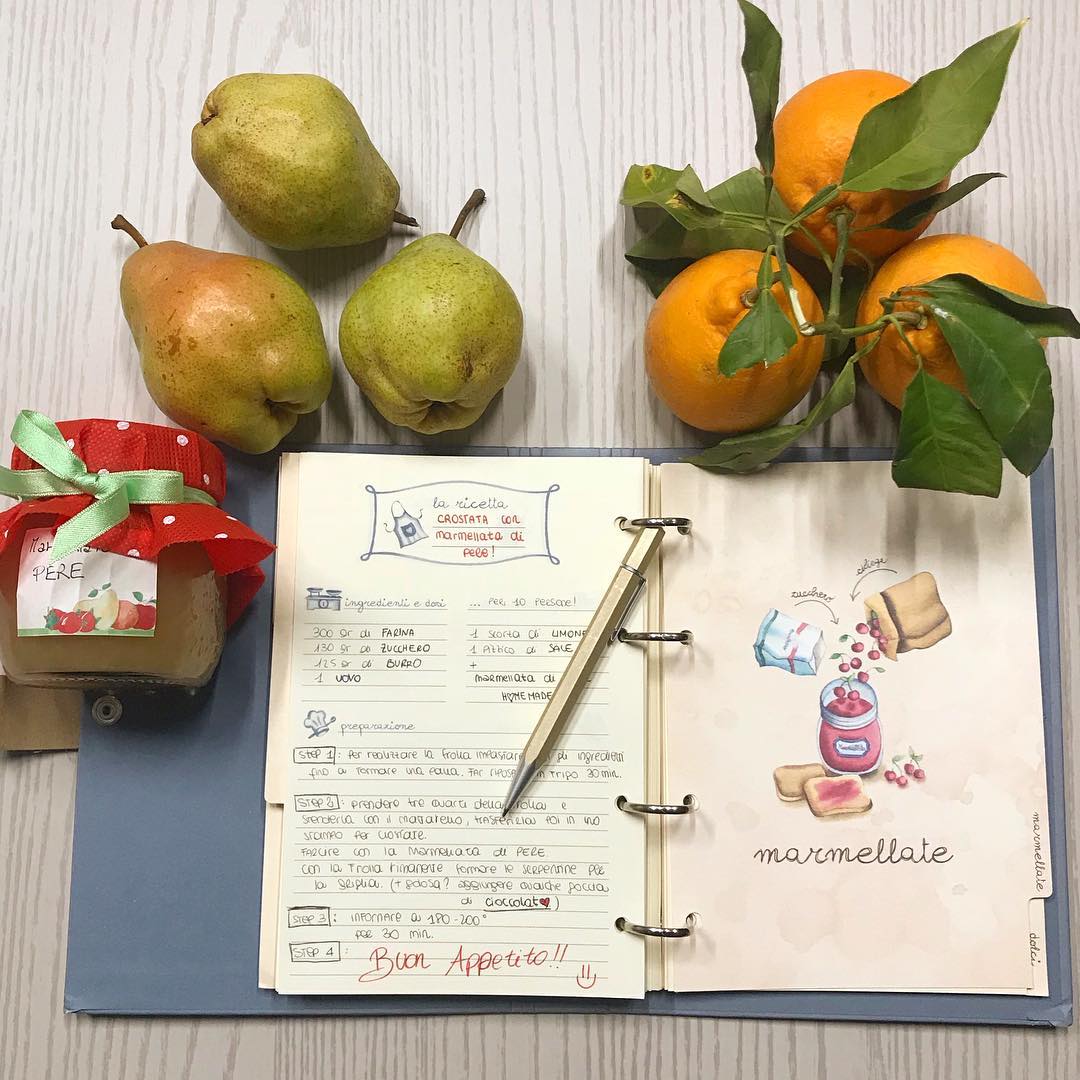 PERE
la ricetta
CROSTATA CON
marmellata di
PERE!
ingredienti e dosi
... PER 10 PERSONE!
300 gr di FARINA
130 gr di ZUCCHERO
125 gr di BURRO
1 UOVO
1 SCORZA di LIMONE
1 PIZZICO di SALE
+
marmellata di
HOMEMADE
preparazione
STEP 1: PER REALIZZARE LA FROLLA IMPASTARE gli INGREDIENTI
FINO A FORMARE UNA PALLA. FAR RIPOSARE IN FRIGO 30 MIN.
STEP 2: PRENDERE TRE QUARTI DELLA FROLLA E
STENDERLA CON IL MATTARELLO, TRASFERIRLA POI IN UNO
STAMPO PER CROSTATE.
FARCIRE CON LA MARMELLATA DI PERE.
CON LA FROLLA RIMANENTE FORMARE LE SERPENTINE PER
LA GRIGLIA. (+ GOLOSA? AGGIUNGERE QUALCHE GOCCIA
DI CIOCCOLATO)
STEP 3: INFORNARE A 180-200°
PER 30 MIN.
STEP 4: Buon Appetito!!
ciliegie
zucchero
marmellate
marmellate
dolci